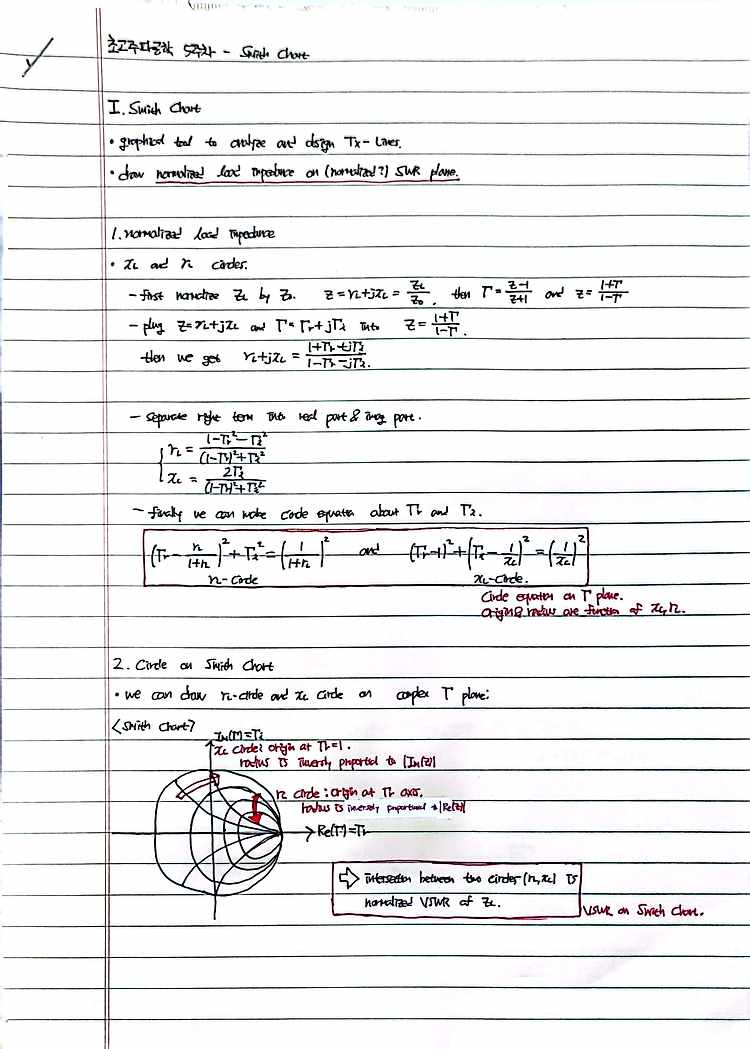 초고주파공학 5주차 - Smith Chart
I. Smith Chart
• graphical tool to analyze and design Tx-Lines.
• draw normalized load impedance on (normalized?) SWR plane.
1. normalized load impedance
• xL and rL circles.
- first normalize ZL by Z0. z = rL+jxL = ZL/Z0, then Γ = (z-1)/(z+1) and z = (1+Γ)/(1-Γ)
- plug z=rL+jxL and Γ=Γr+jΓi into z = (1+Γ)/(1-Γ).
then we get rL+jxL = (1+Γr+jΓi)/(1-Γr-jΓi).
- separate right term into real part & imag part.
rL = (1-Γr²-Γi²)/((1-Γr)²+Γi²)
xL = 2Γi/((1-Γr)²+Γi²)
- finally we can make circle equation about Γr and Γi.
(Γr - rL/(1+rL))² + Γi² = (1/(1+rL))² and (Γr-1)² + (Γi - 1/xL)² = (1/xL)²
rL-circle xL-circle.
Circle equation on Γ plane.
Origin & radius are function of xL, rL.
2. Circle on Smith Chart
• we can draw rL-circle and xL circle on complex Γ plane:
<Smith Chart>
Im(Γ)=Γi
xL circle: origin at Γr=1.
radius is inversly proported to |Im(z)|
rL circle: origin at Γr axis.
radius is inversely proportional to |Re(z)|
Re(Γ)=Γr
⇨ intersection between two circles (rL, xL) is
normalized VSWR of ZL.
VSWR on Smith Chart.